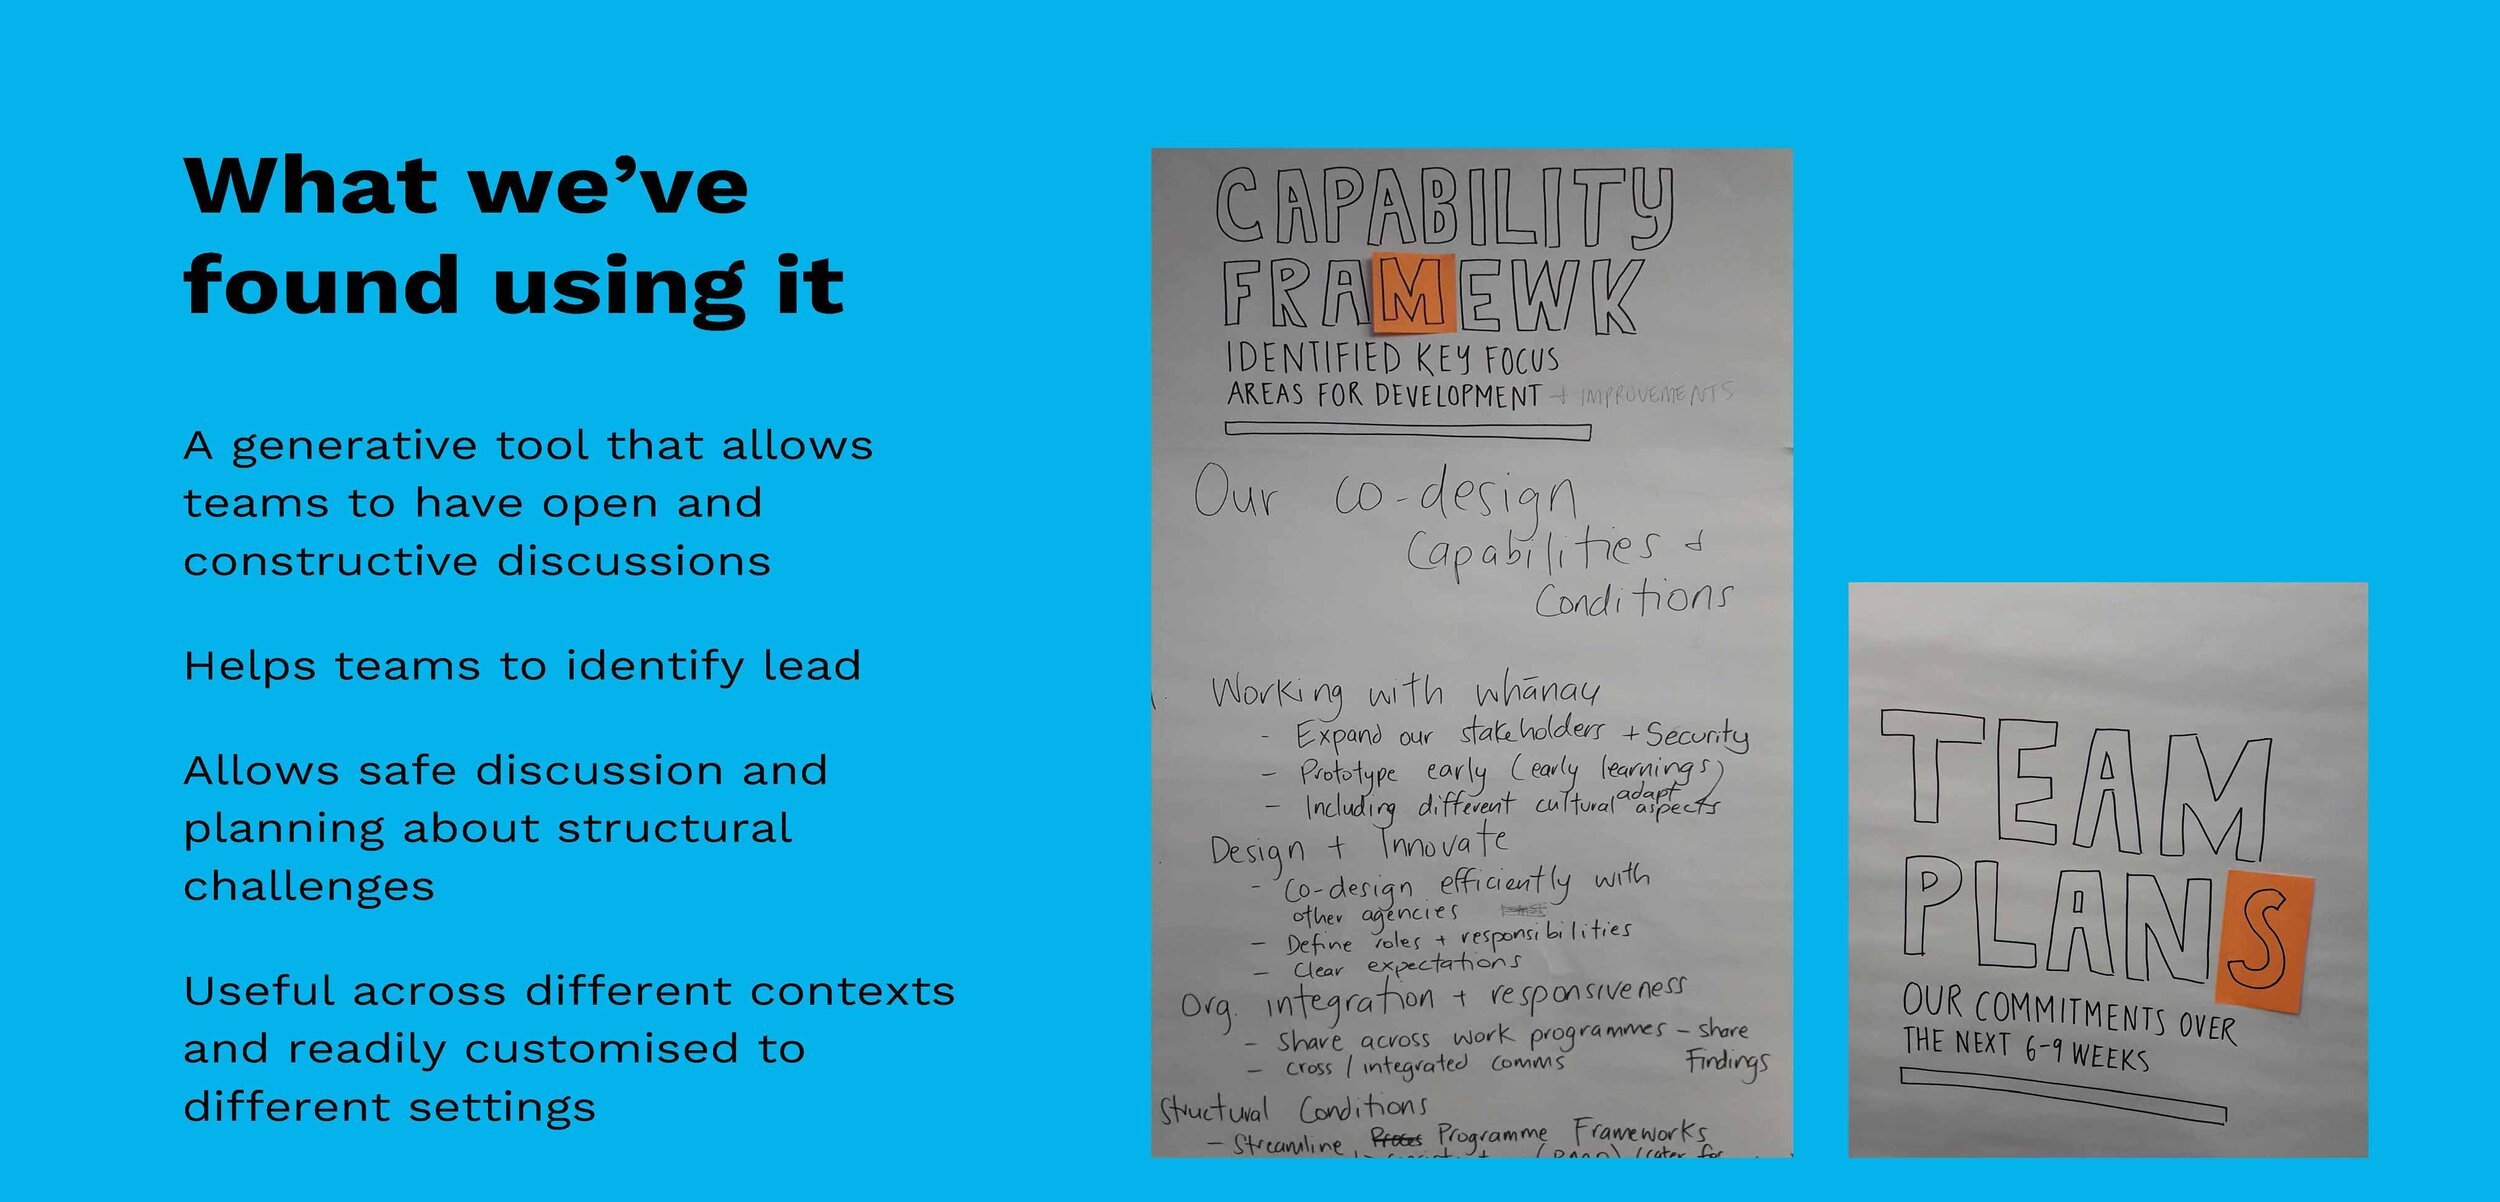 What we’ve
found using it
A generative tool that allows
teams to have open and
constructive discussions
Helps teams to identify lead
Allows safe discussion and
planning about structural
challenges
Useful across different contexts
and readily customised to
different settings
CAPABILITY
FRAMEWK
IDENTIFIED KEY FOCUS
AREAS FOR DEVELOPMENT + IMPROVEMENTS
Our co-design
Capabilities &
Conditions
Working with whānau
- Expand our stakeholders + Security
- Prototype early (early learnings)
adapt
- Including different cultural aspects
Design + Innovate
- Co-design efficiently with
other agencies
- Define roles + responsibilities
- Clear expectations
Org. integration + responsiveness
- Share across work programmes - share
- cross / integrated comms Findings
Structural Conditions
- Streamline Proces Programme Frameworks
TEAM
PLANS
OUR COMMITMENTS OVER
THE NEXT 6-9 WEEKS